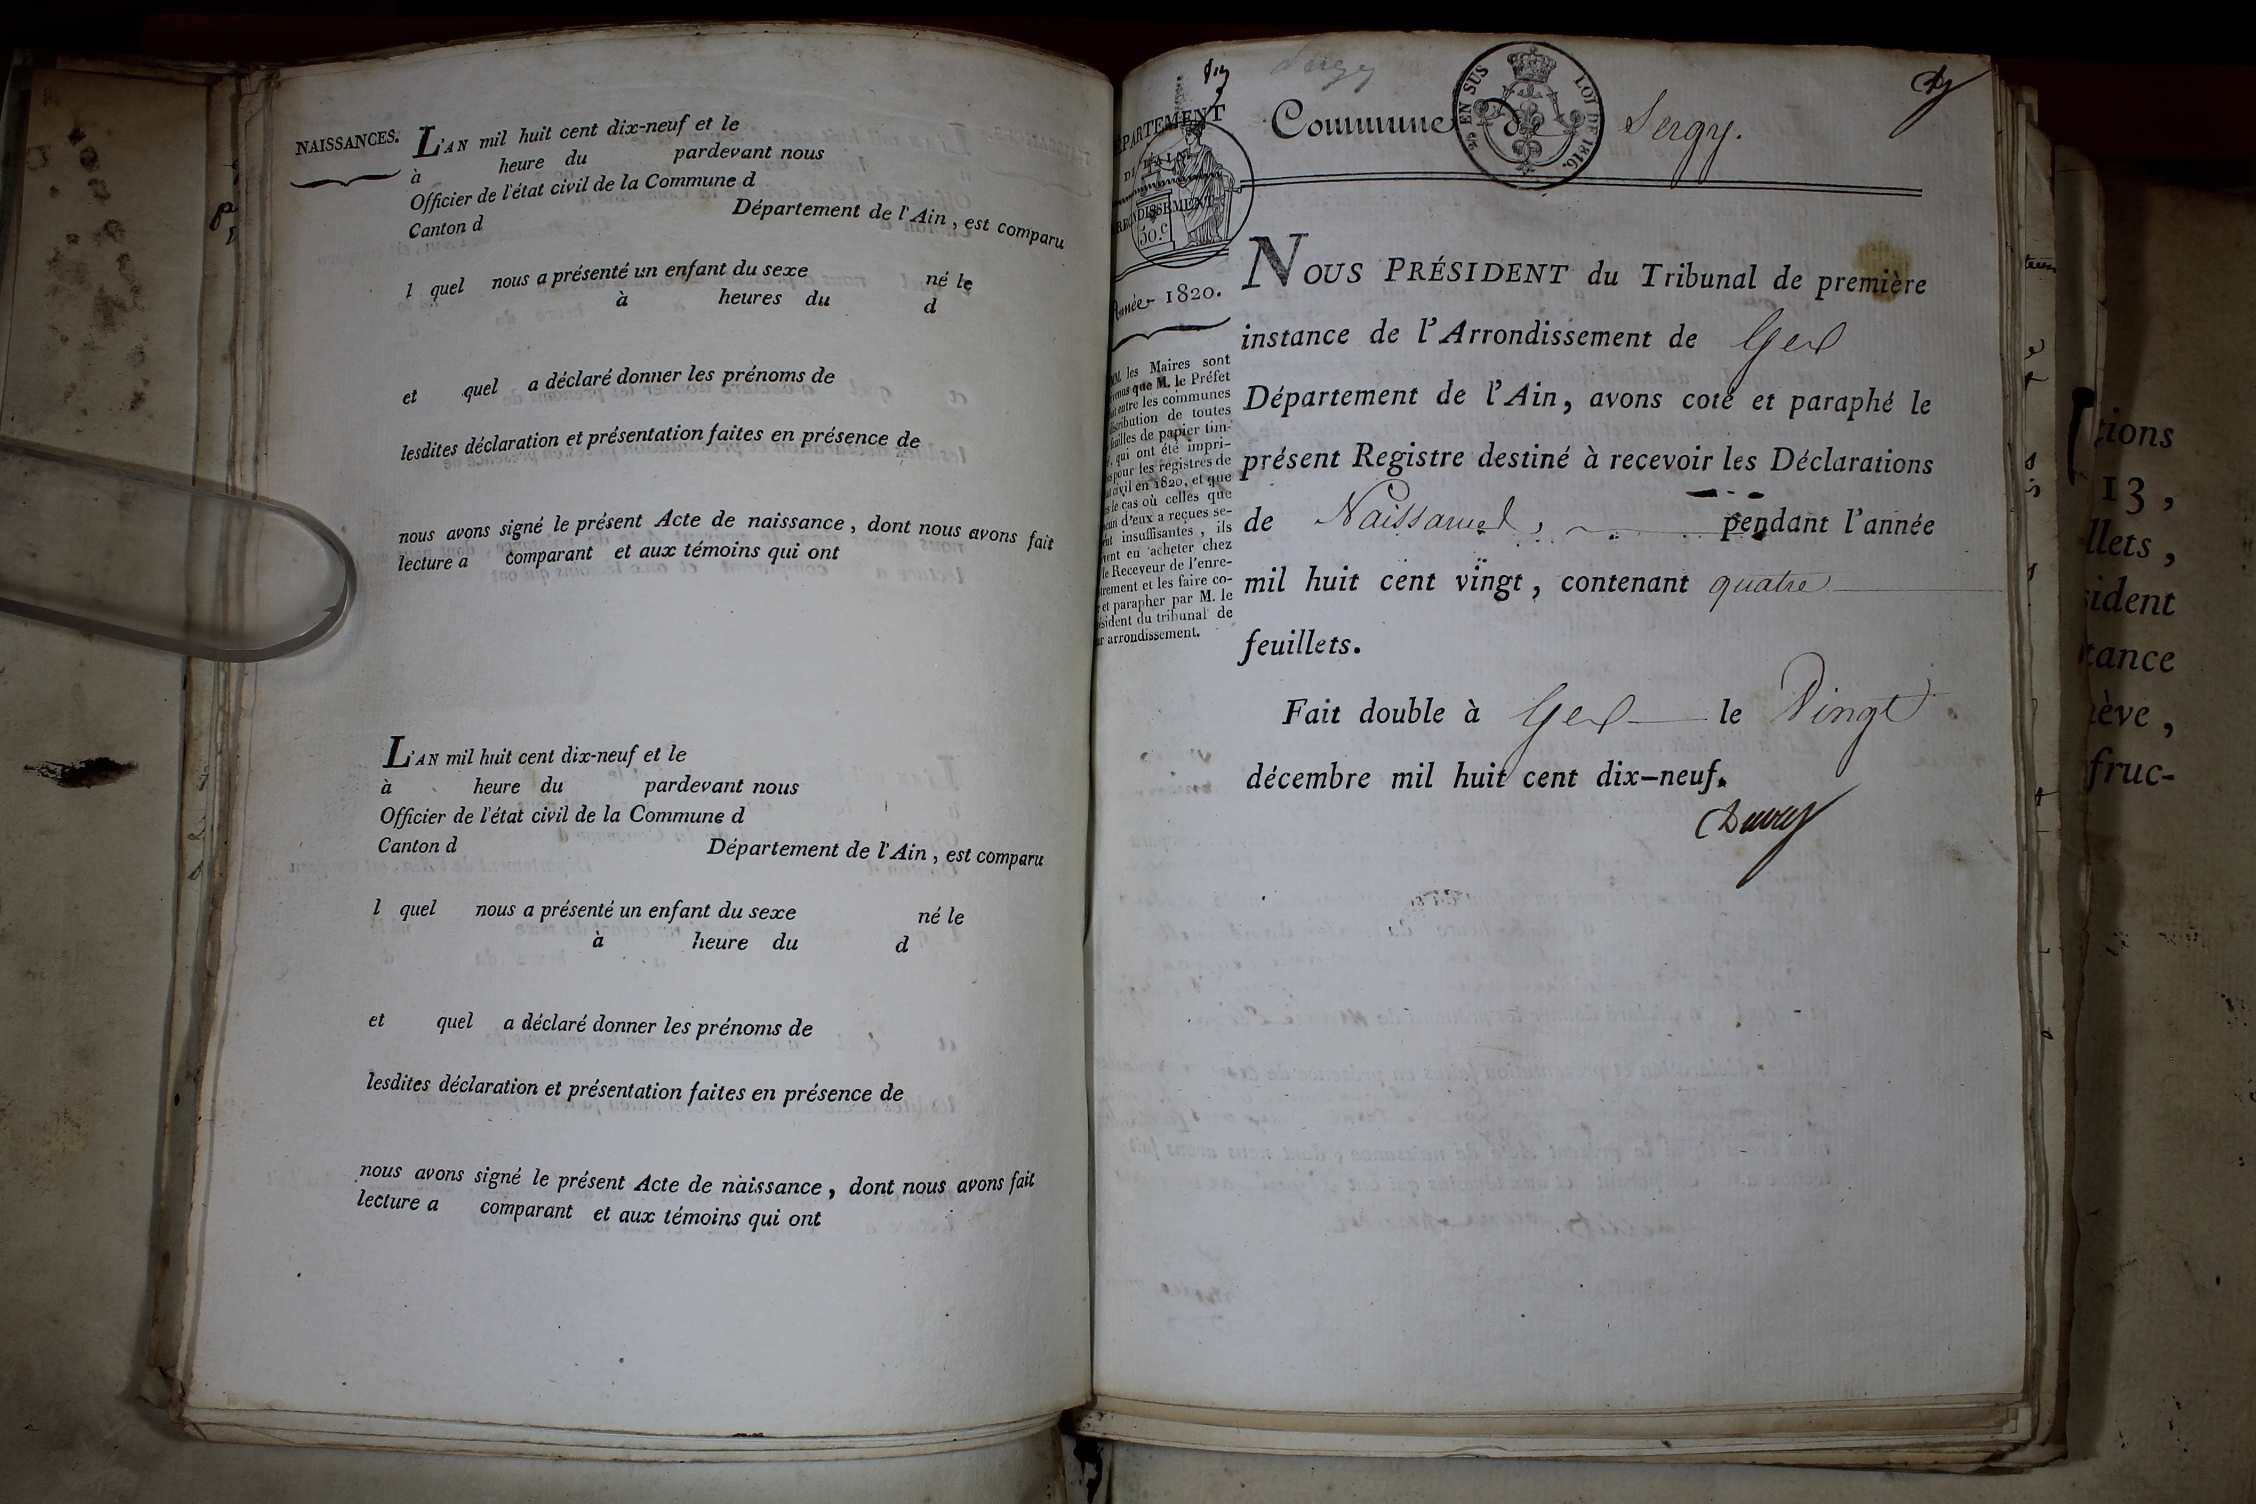 NAISSANCES.
L'AN mil huit cent dix-neuf et le
à heure du pardevant nous
Officier de l'état civil de la Commune d
Canton d Département de l'Ain, est comparu
l quel nous a présenté un enfant du sexe né le
à heures du d
et quel a déclaré donner les prénoms de
lesdites déclaration et présentation faites en présence de
nous avons signé le présent Acte de naissance, dont nous avons fait
lecture a comparant et aux témoins qui ont
L'AN mil huit cent dix-neuf et le
à heure du pardevant nous
Officier de l'état civil de la Commune d
Canton d Département de l'Ain, est comparu
l quel nous a présenté un enfant du sexe né le
à heure du d
et quel a déclaré donner les prénoms de
lesdites déclaration et présentation faites en présence de
nous avons signé le présent Acte de naissance, dont nous avons fait
lecture a comparant et aux témoins qui ont
Sergy
Commune de Sergy.
EN SUS LOI DE 1816.
PARTEMENT
DE L'AIN
RRONDISSEMENT
50.c
Année 1820.
MM. les Maires sont
venus que M. le Préfet
ait entre les communes
distribution de toutes
feuilles de papier tim-
é, qui ont été impri-
s pour les registres de
at civil en 1820, et que
s le cas où celles que
cun d'eux a reçues se-
nt insuffisantes, ils
vent en acheter chez
le Receveur de l'enre-
trement et les faire co-
r et parapher par M. le
ésident du tribunal de
ur arrondissement.
NOUS PRÉSIDENT du Tribunal de première
instance de l'Arrondissement de Gex
Département de l'Ain, avons coté et paraphé le
présent Registre destiné à recevoir les Déclarations
de Naissances, pendant l'année
mil huit cent vingt, contenant quatre
feuillets.
Fait double à Gex le Vingt
décembre mil huit cent dix-neuf.
tions
13,
llets,
sident
tance
nève,
fruc-